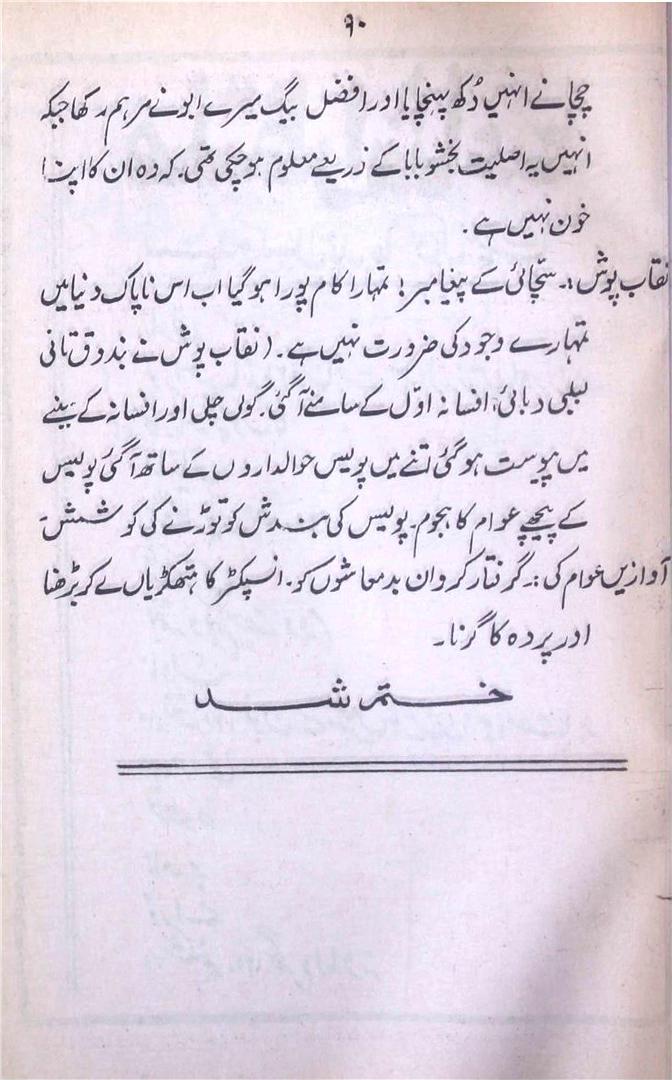 ۹۰
چچا نے انہیں دُکھ پہنچایا اور افضل بیگ میرے ابو نے مرہم رکھا جبکہ
انہیں یہ اصلیت بخشو بابا کے ذریعے معلوم ہو چکی تھی۔ کہ وہ ان کا اپنا
خون نہیں ہے۔
نقاب پوش :۔ سچّائی کے پیغامبر! تمہارا کام پورا ہو گیا اب اس ناپاک دنیا میں
تمہارے وجود کی ضرورت نہیں ہے۔ (نقاب پوش نے بندوق تانی
لبلبی دبائی، افسانہ اوّل کے سامنے آگئی۔ گولی چلی اور افسانہ کے سینے
میں پیوست ہو گئی اتنے میں پولیس حوالداروں کے ساتھ آگئی پولیس
کے پیچھے عوام کا ہجوم۔ پولیس کی بندش کو توڑنے کی کوشش
آوازیں عوام کی :۔ گرفتار کرو ان بدمعاشوں کو۔ انسپکٹر کا ہتھکڑیاں لے کر بڑھنا
اور پردہ کا گرنا۔
ختم شد